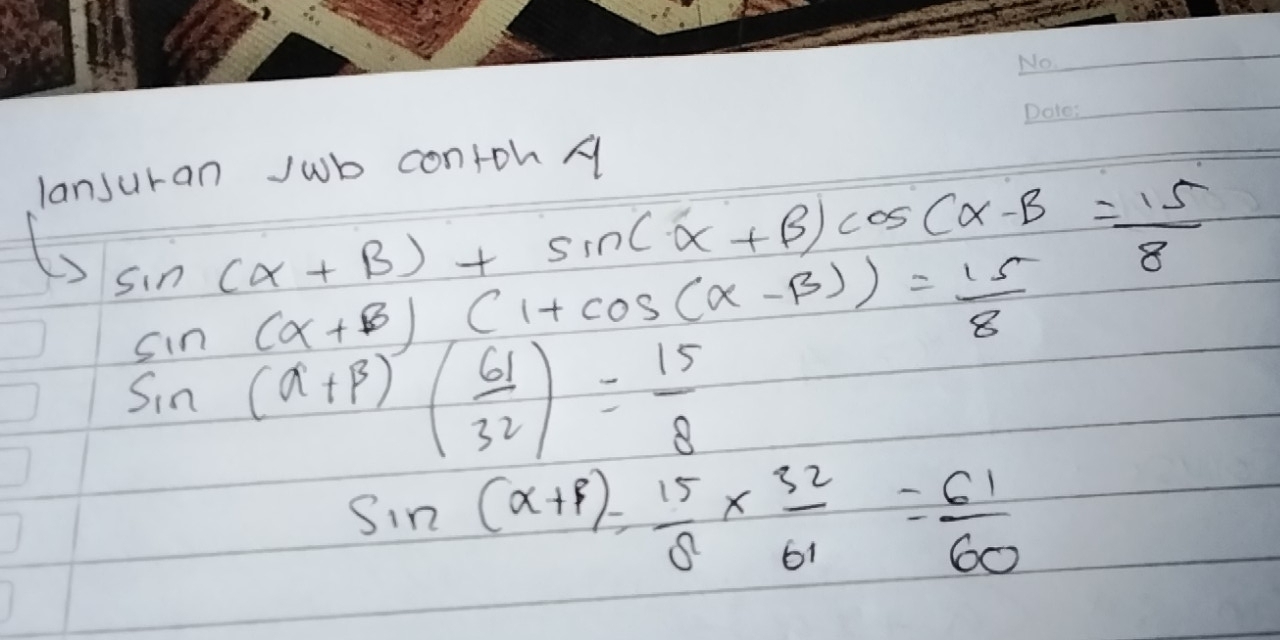 No.
Date:
lanjutan Jwb contoh 4
sin (α + β) + sin(α + β) cos (α - β = 15/8
sin (α + β) (1 + cos (α - β)) = 15/8
Sin (α + β) (61/32) = 15/8
Sin (α + β) = 15/8 × 32/61 = 61/60